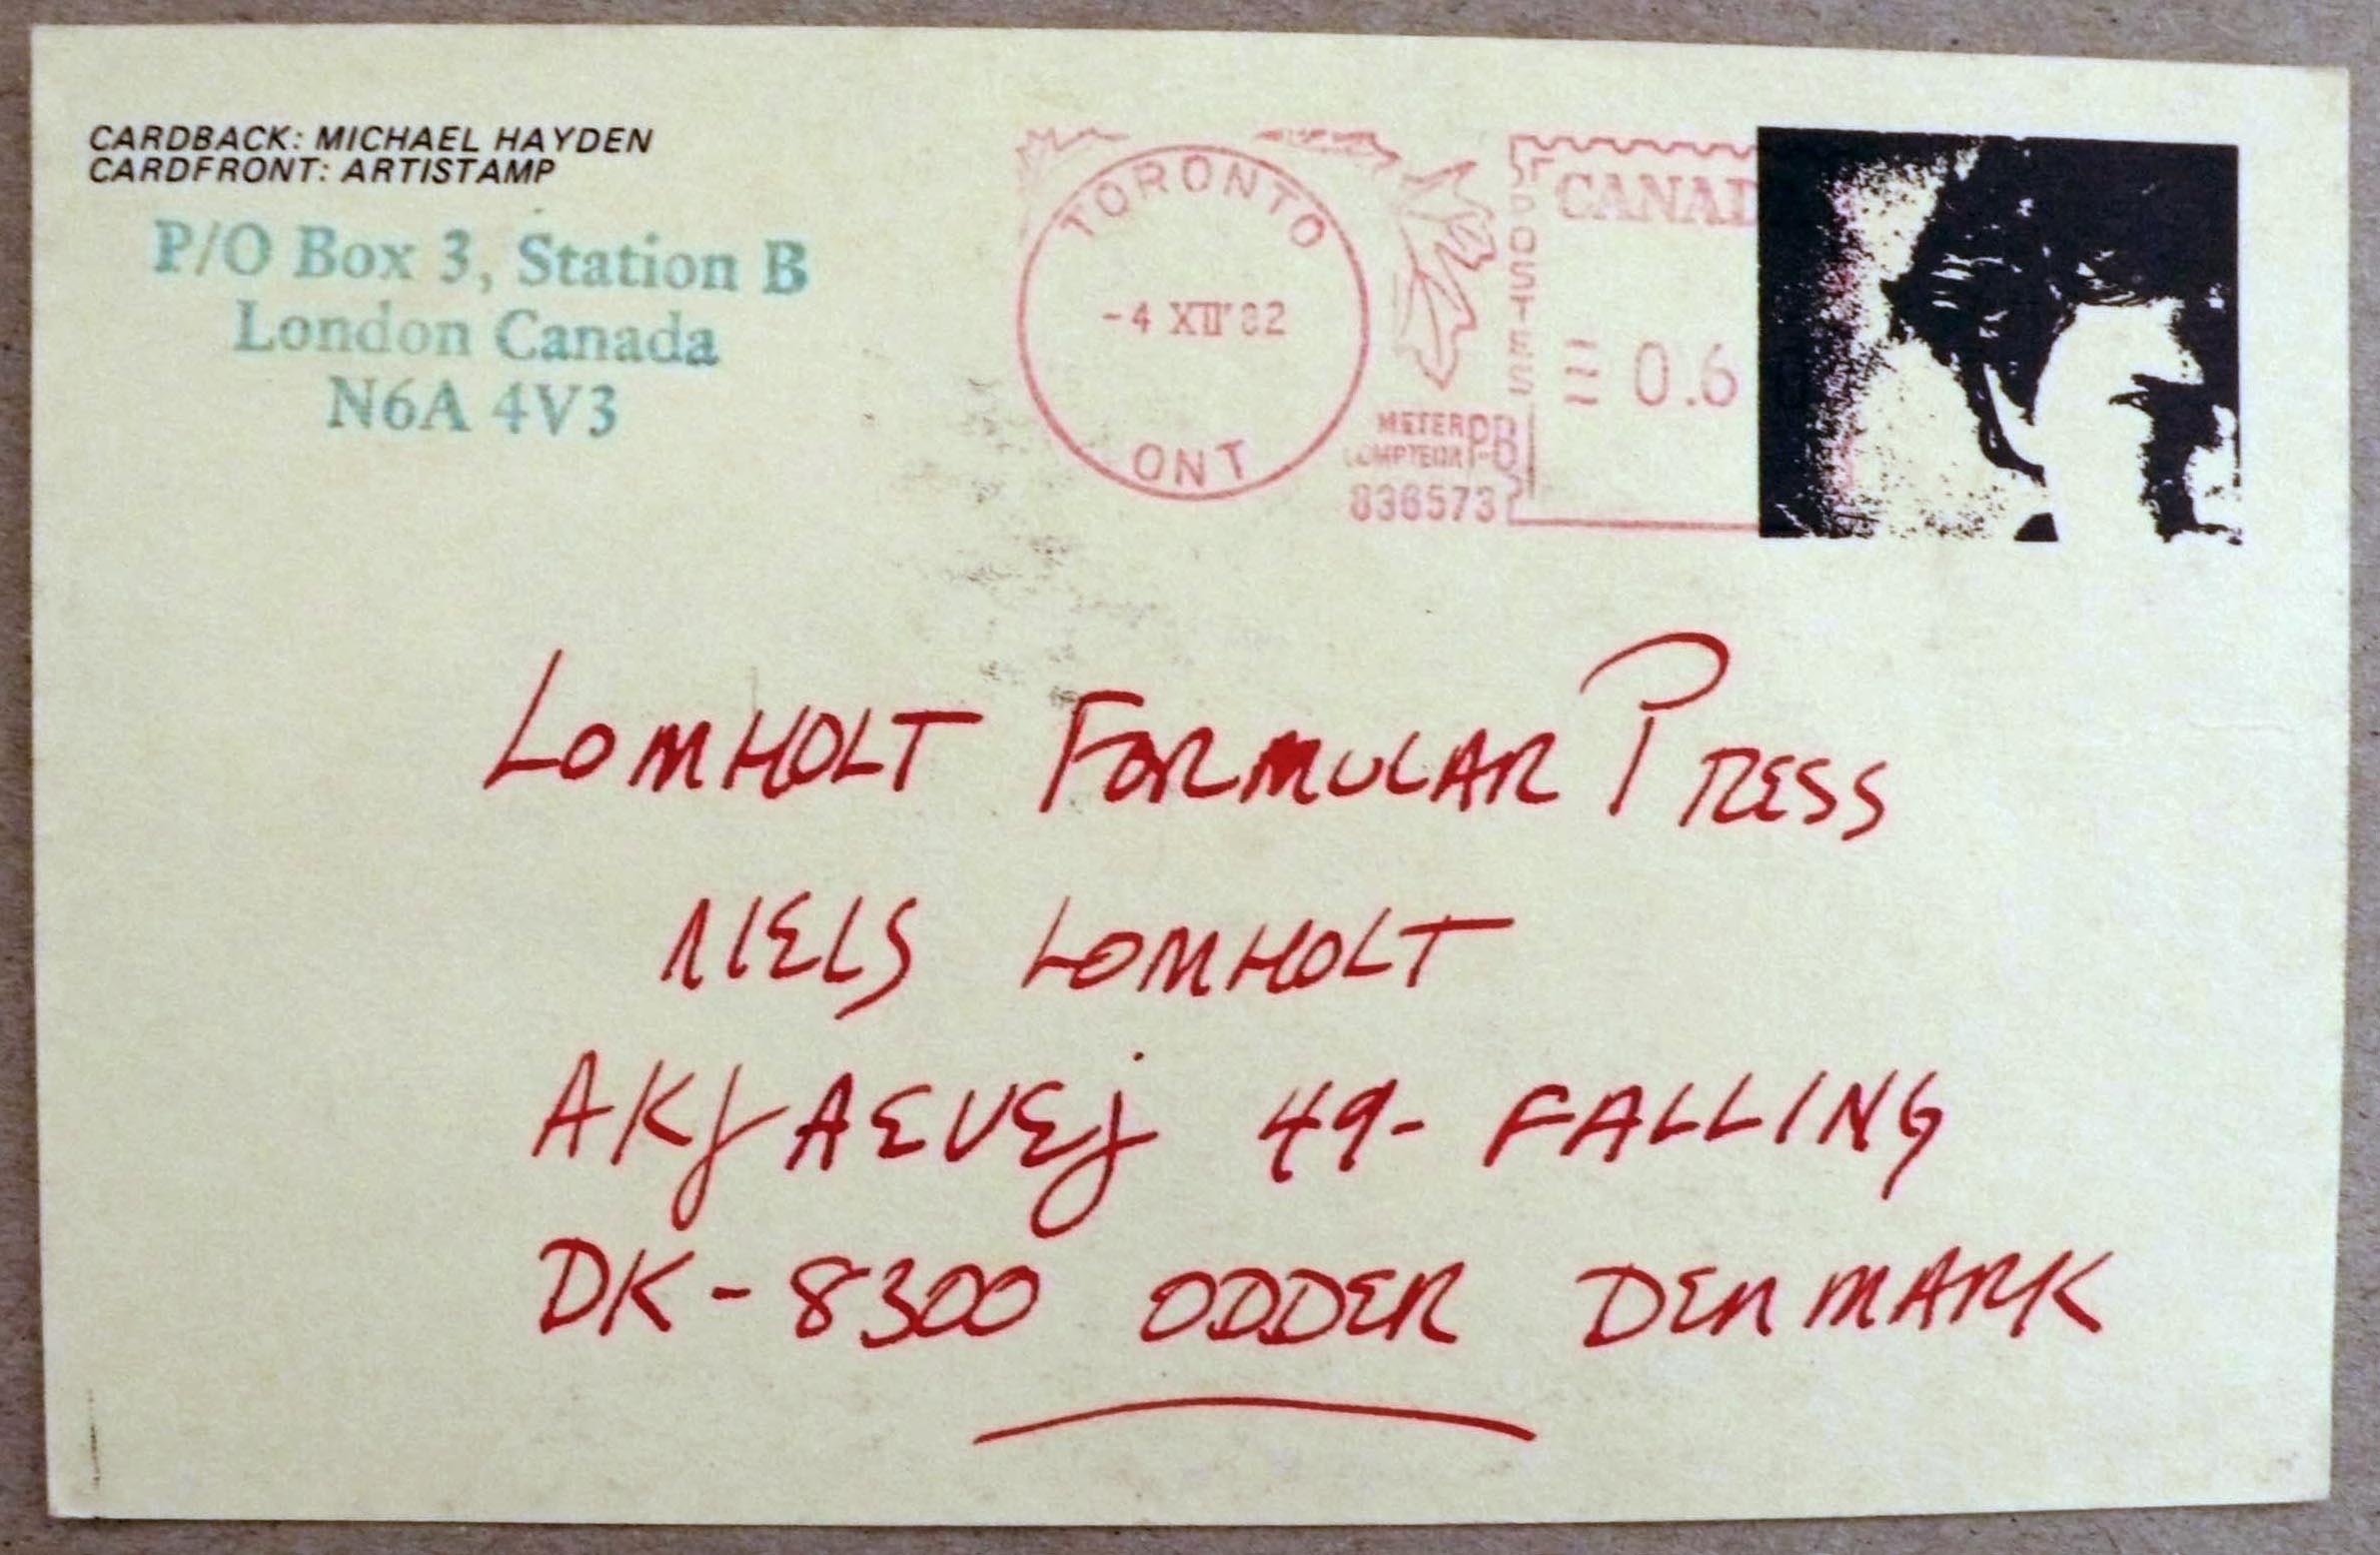 CARDBACK: MICHAEL HAYDEN
CARDFRONT: ARTISTAMP
P/O Box 3, Station B
London Canada
N6A 4V3
TORONTO
-4 XII '82
ONT
METER PB
COMPTEUR
836573
POSTES
CANAD
0.6
LOMHOLT FORMULAR PRESS
NIELS LOMHOLT
AKJAEVEJ 49- FALLING
DK-8300 ODDER DENMARK